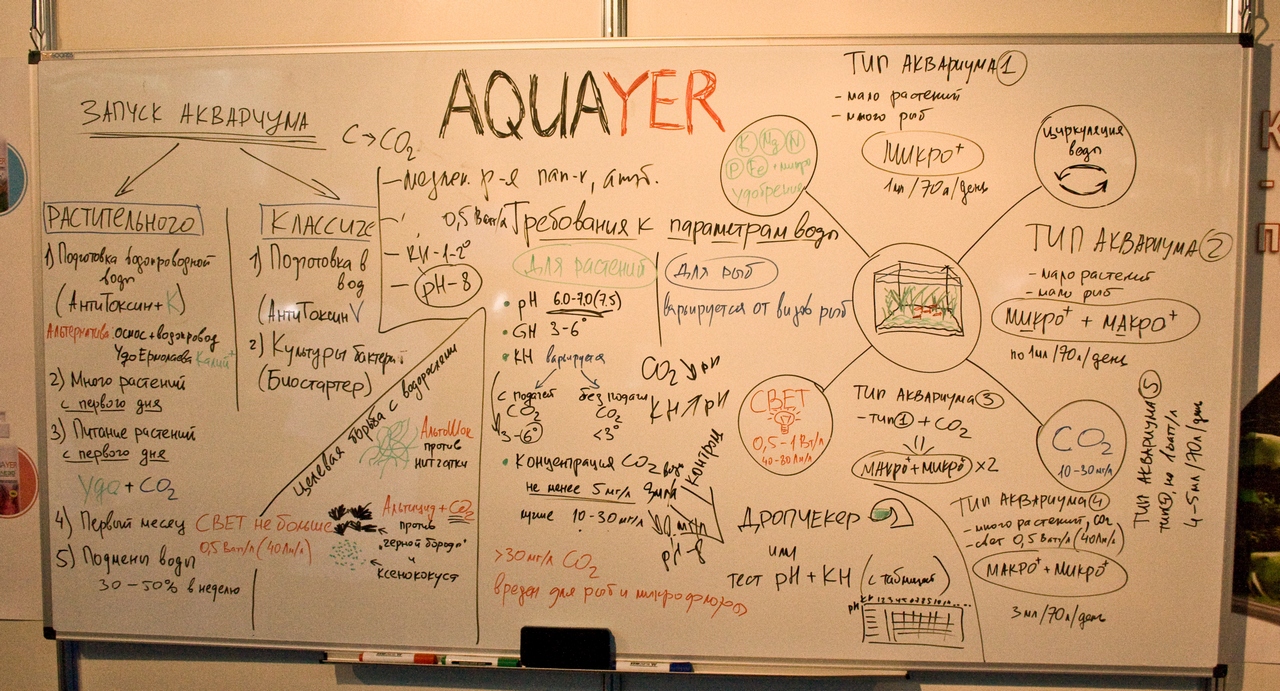 AQUAYER
ЗАПУСК АКВАРИУМА
РАСТИТЕЛЬНОГО
1) Подготовка водопроводной
воды
(АнтиТоксин+K)
Альтернатива: осмос+водопровод
Удо Ермолаева Калий+
2) Много растений
с первого дня
3) Питание растений
с первого дня
Удо + CO2
4) Первый месяц СВЕТ не больше
0,5 Ватт/л (40Лм/л)
5) Подмены воды
30-50% в неделю
КЛАССИЧЕ
1) Подготовка в
вод
(АнтиТоксин V
2) Культуры бактерий
(Биостартер)
C→CO2
0,5 Ватт/л
- KH-1-2°
- pH-8
Целевая борьба с водорослями
АльгоШок
против
нитчатки
Альгицид+CO2
против
"черной бороды"
и
ксенококуст
Требования к параметрам воды
Для растений
• pH 6.0-7.0(7.5)
• GH 3-6°
• KH варьируется
с подачей
CO2
3-6°
без подачи
CO2
<3°
• Концентрация CO2
не менее 5 мг/л
лучше 10-30 мг/л
>30мг/л CO2
вреден для рыб и микрофлоры
Для рыб
варьируется от видов рыб
CO2 ↓ pH
KH ↑ pH
ДРОПЧЕКЕР
или
тест pH + KH (с таблицей)
pH
K Mg N
P Fe + микро
удобрения
ЦИРКУЛЯЦИЯ
воды
СВЕТ
0,5-1 Вт/л
40-80 Лм/л
CO2
10-30 мг/л
ТИП АКВАРИУМА 1
- мало растений
- много рыб
МИКРО+
1мл/70л/день
ТИП АКВАРИУМА 2
- мало растений
- мало рыб
МИКРО+ + МАКРО+
по 1мл/70л/день
ТИП АКВАРИУМА 3
- тип 1 + CO2
МАКРО+ + МИКРО+ x2
ТИП АКВАРИУМА 4
- много растений, CO2
- свет 0,5 Ватт/л (40Лм/л)
МАКРО+ + МИКРО+
3мл/70л/день
ТИП АКВАРИУМА 5
тип 4, но 1 ватт/л
4-5 мл/70л/день